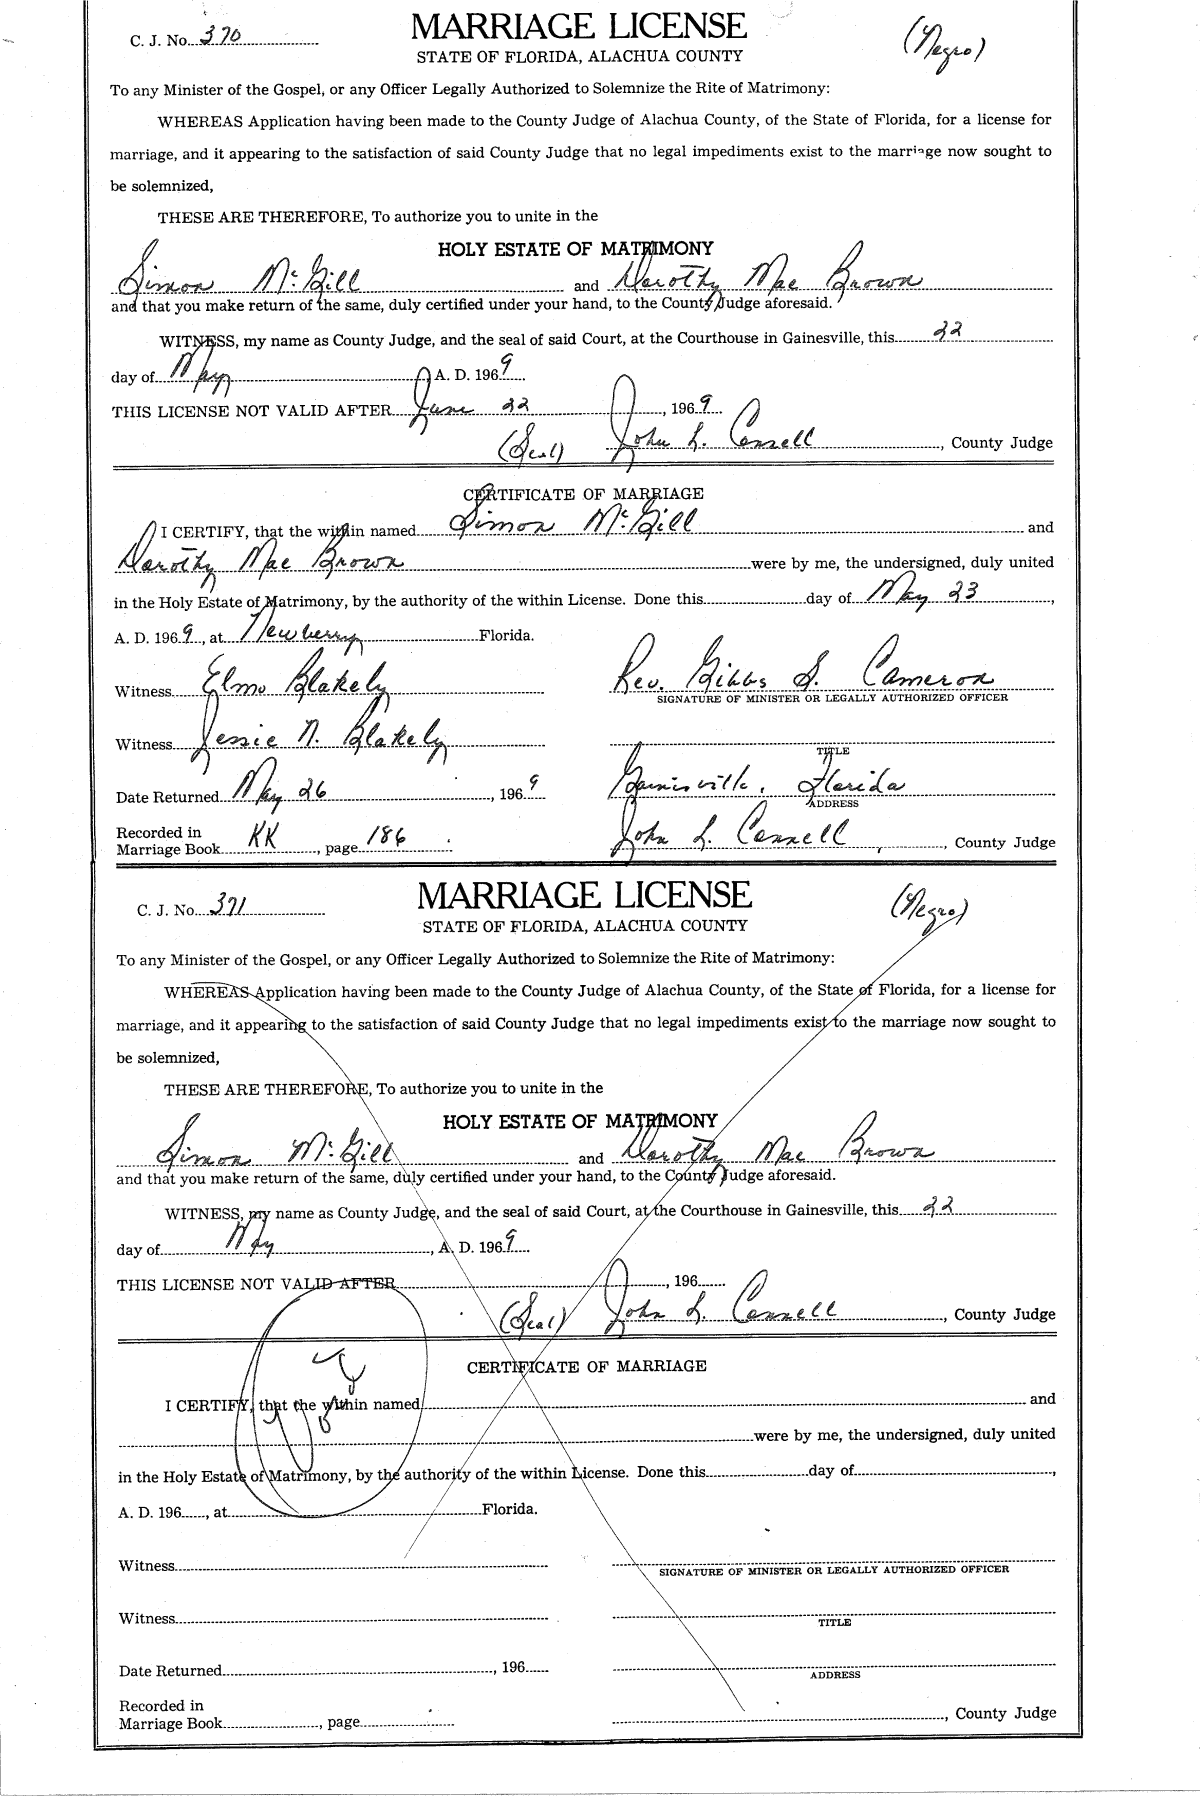 C. J. No. 370
MARRIAGE LICENSE
(Negro)
STATE OF FLORIDA, ALACHUA COUNTY
To any Minister of the Gospel, or any Officer Legally Authorized to Solemnize the Rite of Matrimony:
WHEREAS Application having been made to the County Judge of Alachua County, of the State of Florida, for a license for
marriage, and it appearing to the satisfaction of said County Judge that no legal impediments exist to the marriage now sought to
be solemnized,
THESE ARE THEREFORE, To authorize you to unite in the
HOLY ESTATE OF MATRIMONY
Simon McGill and Dorothy Mae Brown
and that you make return of the same, duly certified under your hand, to the County Judge aforesaid.
WITNESS, my name as County Judge, and the seal of said Court, at the Courthouse in Gainesville, this 22
day of May A. D. 1969
THIS LICENSE NOT VALID AFTER June 22, 1969
(Seal) John L. Connell, County Judge
CERTIFICATE OF MARRIAGE
I CERTIFY, that the within named Simon McGill and
Dorothy Mae Brown were by me, the undersigned, duly united
in the Holy Estate of Matrimony, by the authority of the within License. Done this day of May 23,
A. D. 1969, at Newberry Florida.
Witness Elmo Blakely Rev. Gibbs S. Cameron
SIGNATURE OF MINISTER OR LEGALLY AUTHORIZED OFFICER
Witness Jessie N. Blakely
TITLE
Date Returned May 26, 1969 Gainisville, Florida
ADDRESS
Recorded in
Marriage Book KK, page 186 John L. Connell, County Judge
C. J. No. 371
MARRIAGE LICENSE
(Negro)
STATE OF FLORIDA, ALACHUA COUNTY
To any Minister of the Gospel, or any Officer Legally Authorized to Solemnize the Rite of Matrimony:
WHEREAS Application having been made to the County Judge of Alachua County, of the State of Florida, for a license for
marriage, and it appearing to the satisfaction of said County Judge that no legal impediments exist to the marriage now sought to
be solemnized,
THESE ARE THEREFORE, To authorize you to unite in the
HOLY ESTATE OF MATRIMONY
Simon McGill and Dorothy Mae Brown
and that you make return of the same, duly certified under your hand, to the County Judge aforesaid.
WITNESS, my name as County Judge, and the seal of said Court, at the Courthouse in Gainesville, this 22
day of May, A. D. 1969
THIS LICENSE NOT VALID AFTER, 196
(Seal) John L. Connell, County Judge
CERTIFICATE OF MARRIAGE
I CERTIFY, that the within named and
were by me, the undersigned, duly united
in the Holy Estate of Matrimony, by the authority of the within License. Done this day of,
A. D. 196, at Florida.
Witness
SIGNATURE OF MINISTER OR LEGALLY AUTHORIZED OFFICER
Witness
TITLE
Date Returned, 196
ADDRESS
Recorded in
Marriage Book, page, County Judge